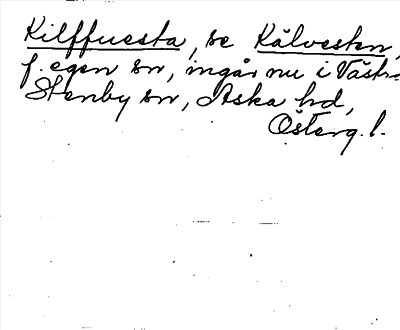 Kilffuesta, se Kälvesten,
f. egen sn, ingår nu i Västra
Stenby sn, Aska hd,
Österg. l.